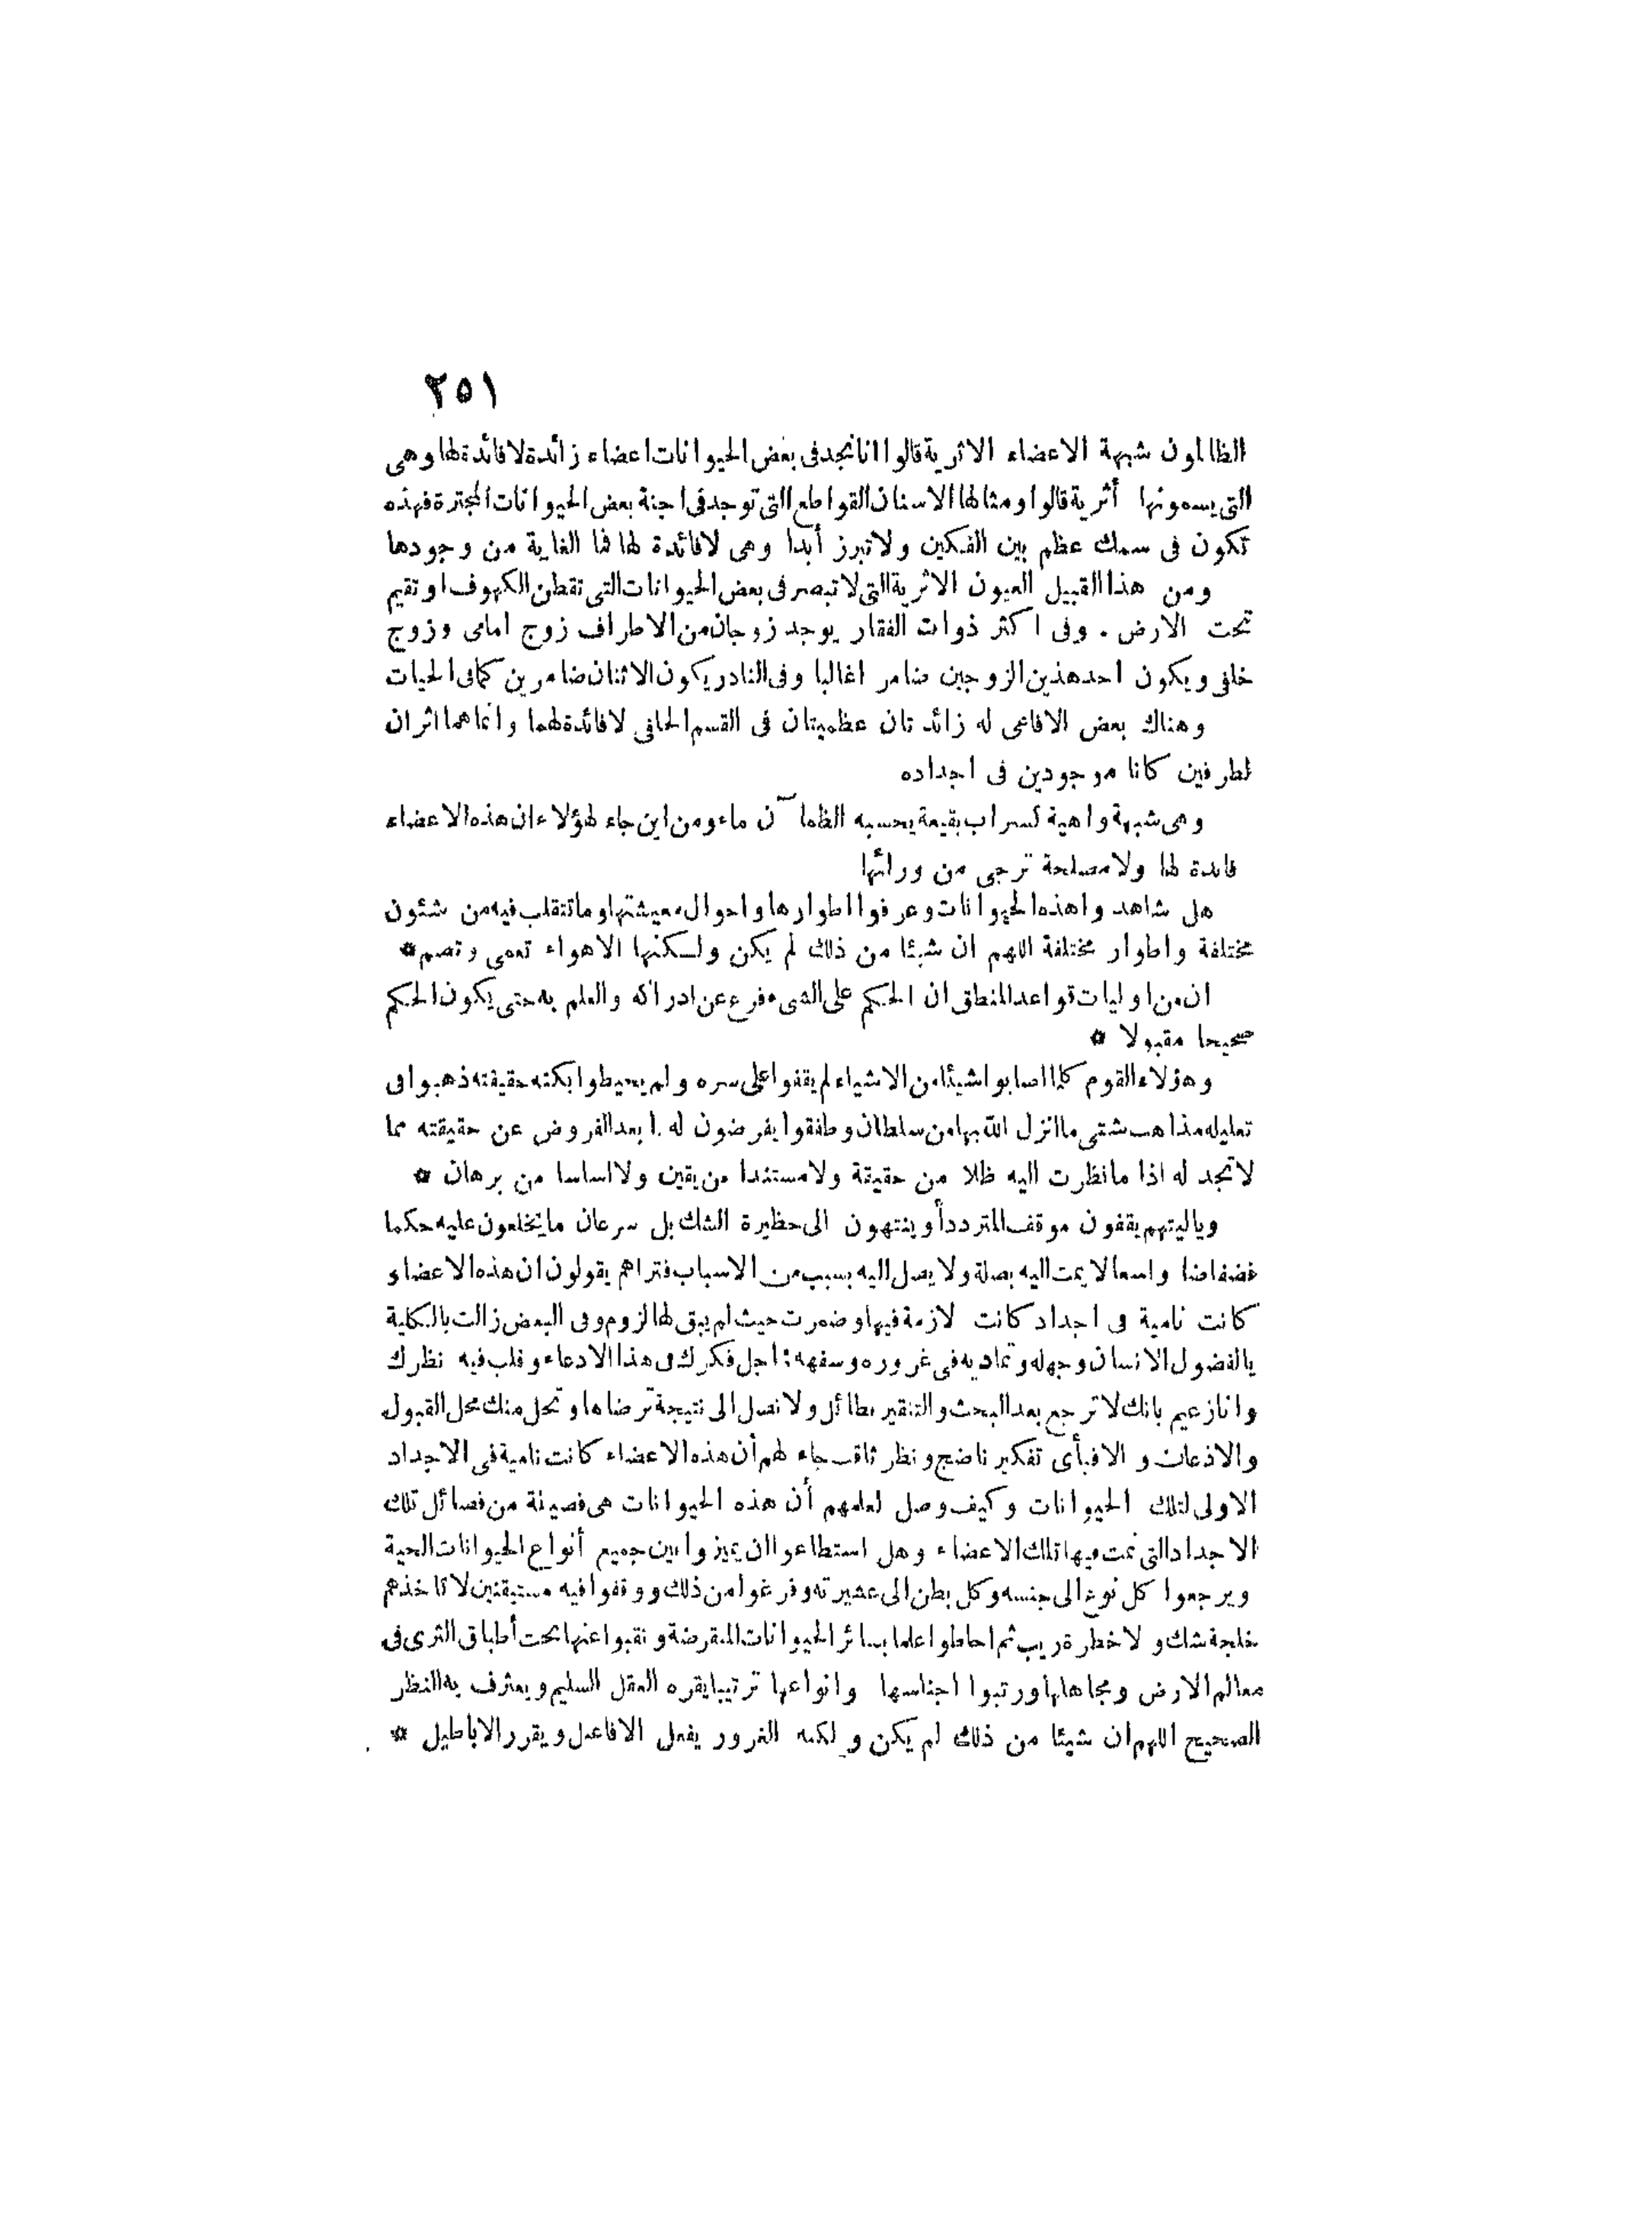 ٢٥١
الظالمون شبهة الاعضاء الاثرية قالوا انا نجد فى بعض الحيوانات اعضاء زائدة لا فائدة لها وهى
التى يسمونها أثرية قالوا ومثالها الاسنان القواطع التى توجد فى اجنة بعض الحيوانات المجترة فهذه
تكون فى سمك عظم بين الفكين ولا تبرز أبدا وهى لا فائدة لها فما الغاية من وجودها
ومن هذا القبيل العيون الاثرية التى لا تبصر فى بعض الحيوانات التى تقطن الكهوف او تقيم
تحت الارض . وفى اكثر ذوات الفقار يوجد زوجان من الاطراف زوج امامى وزوج
خلفى ويكون احد هذين الزوجين ضامرا غالبا وفى النادر يكون الاثنان ضامرين كما فى الحيات
وهناك بعض الافاعى له زائدتان عظميتان فى القسم الخلفى لا فائدة لهما وانما هما اثران
لطرفين كانا موجودين فى اجداده
وهى شبهة واهية كسراب بقيعة يحسبه الظمآن ماء ومن اين جاء لهؤلاء ان هذه الاعضاء
فائدة لها ولا مصلحة ترجى من ورائها
هل شاهدوا هذه الحيوانات وعرفوا اطوارها واحوال معيشتها وما تتقلب فيه من شئون
مختلفة واطوار مختلفة اللهم ان شيئا من ذلك لم يكن ولكنها الاهواء تعمى وتصم *
ان من اوليات قواعد المنطق ان الحكم على الشىء فرع عن ادراكه والعلم به حتى يكون الحكم
صحيحا مقبولا *
وهؤلاء القوم كلما اصابوا شيئا من الاشياء لم يقفوا على سره ولم يحيطوا بكنه حقيقته ذهبوا فى
تعليله مذاهب شتى ما انزل الله بها من سلطان وطفقوا يفرضون له ابعد الفروض عن حقيقته مما
لا تجد له اذا ما نظرت اليه ظلا من حقيقة ولا مستندا من يقين ولا اساسا من برهان *
وياليتهم يقفون موقف المتردد أو ينتهون الى حظيرة الشك بل سرعان ما يخلعون عليه حكما
فضفاضا واسعا لا يمت اليه بصلة ولا يصل اليه بسبب من الاسباب فتراهم يقولون ان هذه الاعضاء
كانت نامية فى اجداد كانت لازمة فيها وضمرت حيث لم يبق لها لزوم وفى البعض زالت بالكلية
يا لفضول الانسان وجهله وتماديه فى غروره وسفهه : اجل فكرك فى هذا الادعاء وقلب فيه نظرك
وانا زعيم بانك لا ترجع بعد البحث والتنقير بطائل ولا تصل الى نتيجة ترضاها وتحل منك محل القبول
والاذعان والا فبأى تفكير ناضج ونظر ثاقب جاء لهم أن هذه الاعضاء كانت نامية فى الاجداد
الاولى لتلك الحيوانات وكيف وصل لعلمهم أن هذه الحيوانات هى فصيلة من فصائل تلك
الاجداد التى نمت فيها تلك الاعضاء وهل استطاعوا ان يميزوا بين جميع أنواع الحيوانات الحية
ويرجعوا كل نوع الى جنسه وكل بطن الى عشيرته وفرغوا من ذلك ووقفوا فيه مستيقنين لا تاخذهم
خلجة شك ولا خطرة ريب ثم احاطوا علما بسائر الحيوانات المنقرضة ونقبوا عنها تحت أطباق الثرى فى
معالم الارض ومجاهلها ورتبوا اجناسها وانواعها ترتيبا يقره العقل السليم ويعترف به النظر
الصحيح اللهم ان شيئا من ذلك لم يكن ولكنه الغرور يفعل الافاعيل ويقرر الاباطيل *